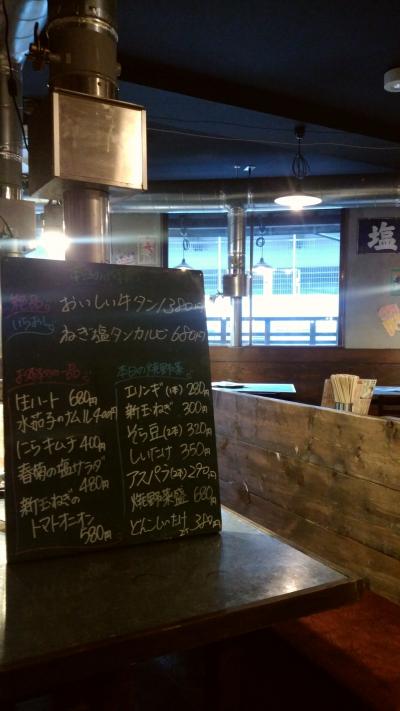 おいしい牛タン 1380円
ねぎ塩タンカルビ 680円
本日の焼野菜
生ハート 680円
水茄子のナムル 400円
にらキムチ 400円
春菊の塩サラダ
480円
新玉ねぎの
トマトオニオン
580円
エリンギ(1本) 280円
新玉ねぎ 300円
そら豆(2本) 320円
しいたけ 350円
アスパラ(2本) 290円
焼野菜盛 680円
どんこしいたけ
塩